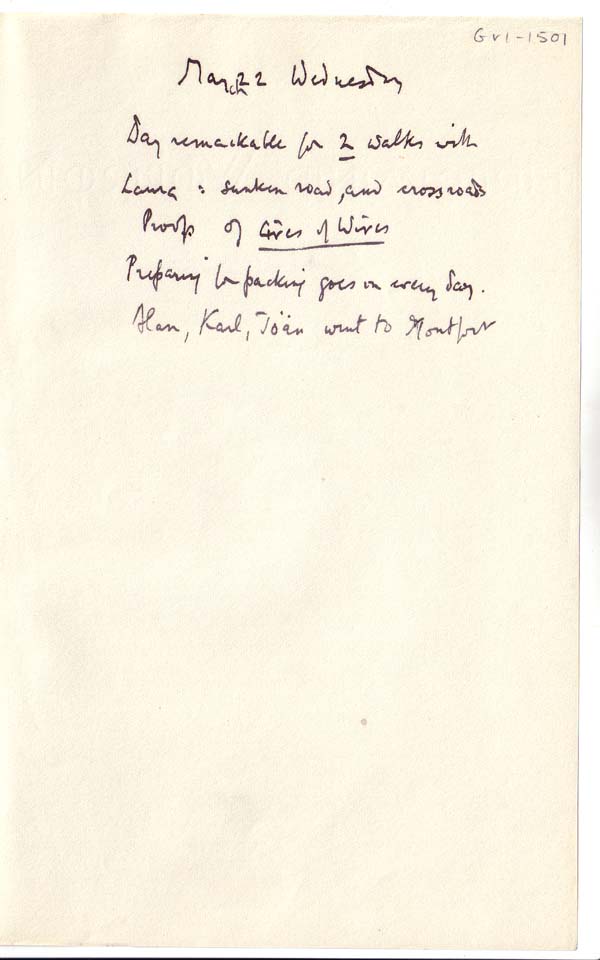 Gv1-1501
March 22 Wednesday
Day remarkable for 2 walks with
Laura: sunken road, and crossroads
Proofs of Lives of Wives
Preparing for packing goes on every day.
Alan, Karl, Joan went to Montfort